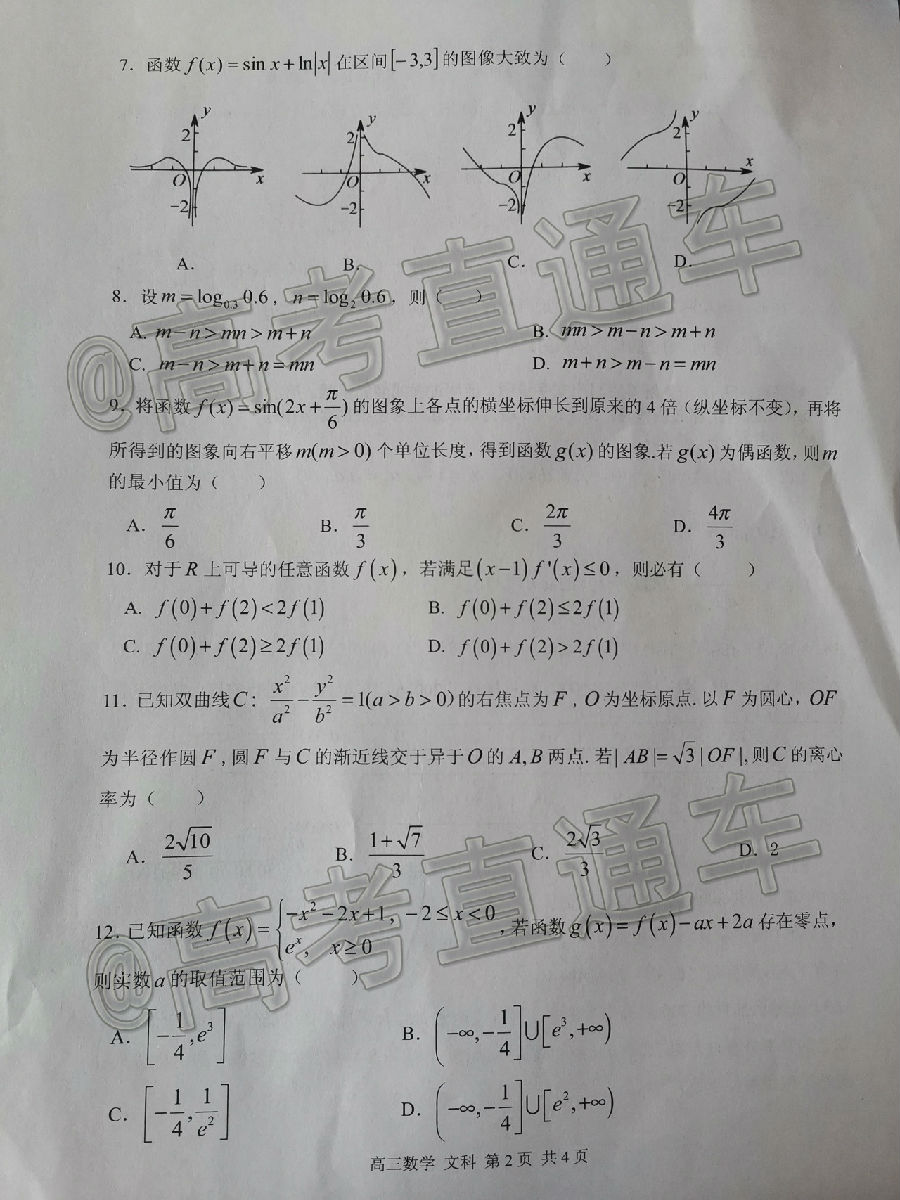 7. 函数 f(x)=sin x+ln|x| 在区间[-3,3]的图像大致为（    ）
y y y y
2 2 2 2
O x O x O x O x
-2 -2 -2 -2
A. B. C. D.
8. 设 m=log₀.₃0.6，n=log₂0.6，则（    ）
A. m-n>mn>m+n B. mn>m-n>m+n
C. m-n>m+n=mn D. m+n>m-n=mn
9. 将函数 f(x)=sin(2x+π/6) 的图象上各点的横坐标伸长到原来的 4 倍（纵坐标不变），再将
所得到的图象向右平移 m(m>0) 个单位长度，得到函数 g(x) 的图象.若 g(x) 为偶函数，则 m
的最小值为（    ）
A. π/6 B. π/3 C. 2π/3 D. 4π/3
10. 对于 R 上可导的任意函数 f(x)，若满足 (x-1)f'(x)≤0，则必有（    ）
A. f(0)+f(2)<2f(1) B. f(0)+f(2)≤2f(1)
C. f(0)+f(2)≥2f(1) D. f(0)+f(2)>2f(1)
11. 已知双曲线 C：x²/a²-y²/b²=1(a>b>0) 的右焦点为 F，O 为坐标原点. 以 F 为圆心，OF
为半径作圆 F，圆 F 与 C 的渐近线交于异于 O 的 A,B 两点. 若|AB|=√3|OF|,则 C 的离心
率为（    ）
A. 2√10/5 B. (1+√7)/3 C. 2√3/3 D. 2
12. 已知函数 f(x)={-x²-2x+1, -2≤x<0; eˣ, x≥0，若函数 g(x)=f(x)-ax+2a 存在零点，
则实数 a 的取值范围为（    ）
A. [-1/4, e³] B. (-∞, -1/4]∪[e³, +∞)
C. [-1/4, 1/e²] D. (-∞, -1/4]∪[e², +∞)
高三数学 文科 第 2 页 共 4 页
@高考直通车
@高考直通车